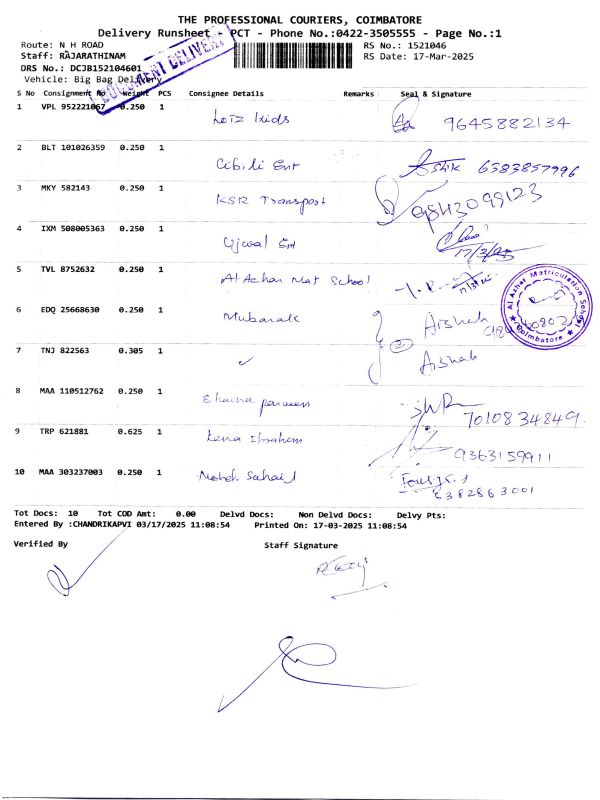 THE PROFESSIONAL COURIERS, COIMBATORE
Delivery Runsheet - PCT - Phone No.:0422-3505555 - Page No.:1
Route: N H ROAD RS No.: 1521046
Staff: RAJARATHINAM RS Date: 17-Mar-2025
DRS No.: DCJB152104601
Vehicle: Big Bag Delivery
DOCUMENT DELIVERY
S No Consignment No Weight PCS Consignee Details Remarks Seal & Signature
1 VPL 952221067 0.250 1 Letz kids 9645882134
2 BLT 101026359 0.250 1 Cibili Ent Ashik 6383857996
3 MKY 582143 0.250 1 KSR Transport 9843099123
4 IXM 508005363 0.250 1 Ujwal Ent 17/3/25
5 TVL 8752632 0.250 1 Al Azhar Mat School
Al Azhar Matriculation School Coimbatore
6 EDQ 25668630 0.250 1 Mubarak Aishah
7 TNJ 822563 0.305 1 ✓ 2 Aishah
8 MAA 110512762 0.250 1 7010834849
9 TRP 621881 0.625 1 Ibrahom 9363159911
10 MAA 303237003 0.250 1 Mohd. Suhail 6382863001
Tot Docs: 10 Tot COD Amt: 0.00 Delvd Docs: Non Delvd Docs: Delvy Pts:
Entered By :CHANDRIKAPVI 03/17/2025 11:08:54 Printed On: 17-03-2025 11:08:54
Verified By Staff Signature